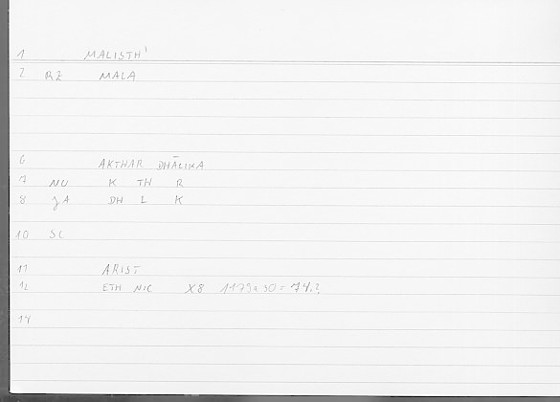 1 MALISTH'
2 RZ MALA
6 AKTHAR DHĀLIKA
7 MU K TH R
8 gA DH L K
10 SC
11 ARIST
12 ETH NIC X8 1173a30 = 74.2
14